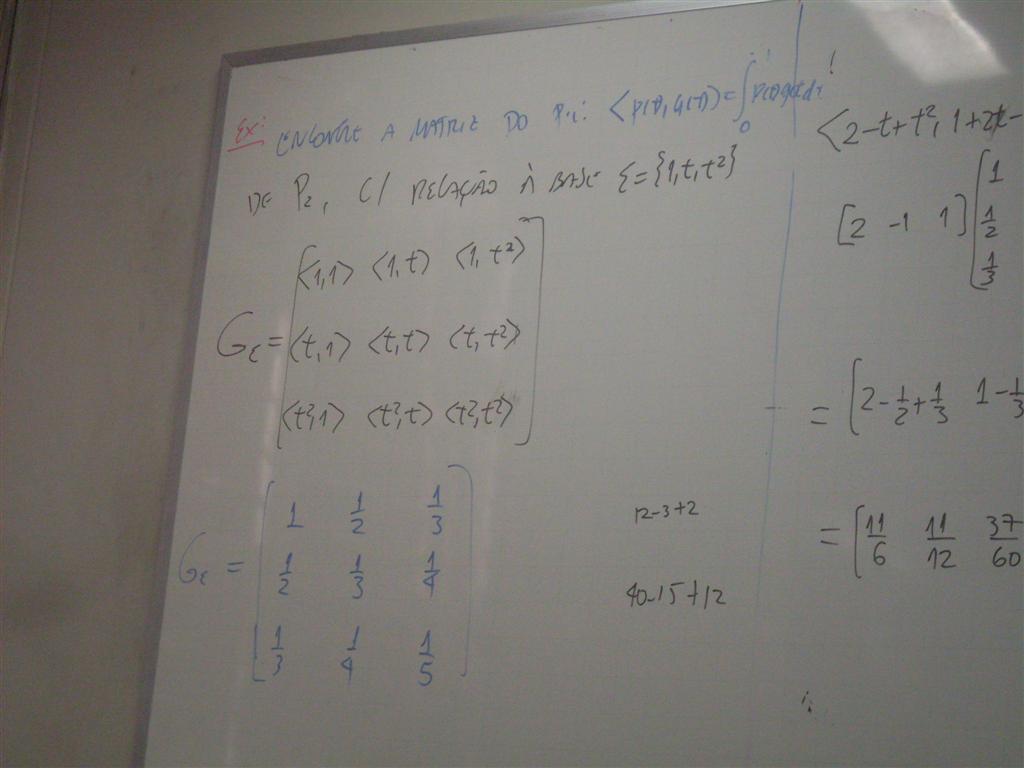 Ex: ENCONTRE A MATRIZ DO P.i: <p(t), q(t)> = ∫₀¹ p(t)q(t)dt
DE P₂, C/ RELAÇÃO À BASE ε = {1, t, t²}
Gε = [<1,1> <1,t> <1,t²>
<t,1> <t,t> <t,t²>
<t²,1> <t²,t> <t²,t²>]
Gε = [1 1/2 1/3
1/2 1/3 1/4
1/3 1/4 1/5]
12-3+2
40-15+12
<2-t+t², 1+2t-
[2 -1 1] [1
1/2
1/3
= [2-1/2+1/3 1-1/3
= [11/6 11/12 37/60